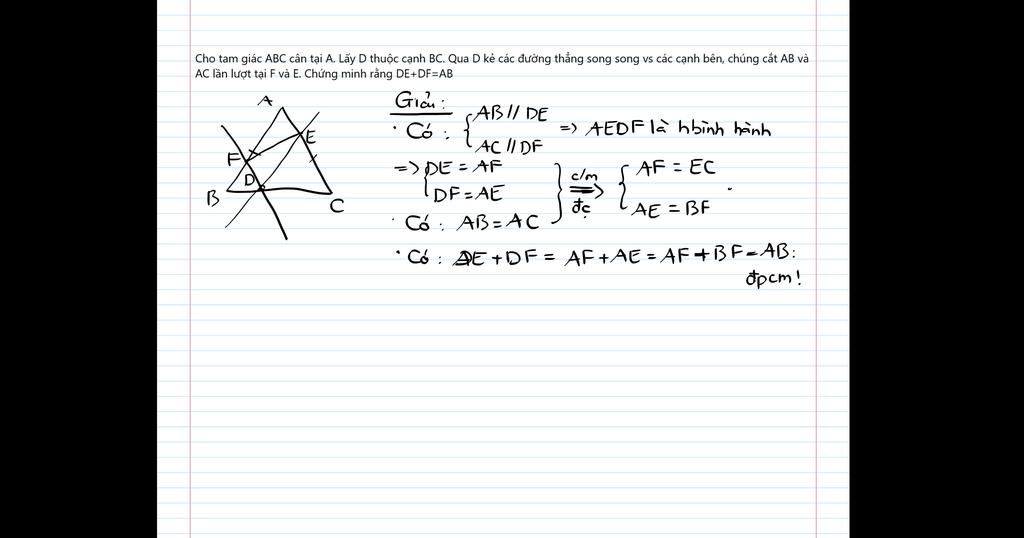 Cho tam giác ABC cân tại A. Lấy D thuộc cạnh BC. Qua D kẻ các đường thẳng song song vs các cạnh bên, chúng cắt AB và
AC lần lượt tại F và E. Chứng minh rằng DE+DF=AB
A
E
F
D
B
C
Giải:
· Có : { AB // DE
AC // DF
=> AEDF là hbình hành
=> { DE = AF
DF = AE
· Có : AB = AC
} c/m => đc { AF = EC
AE = BF
· Có : DE + DF = AF + AE = AF + BF = AB:
đpcm!